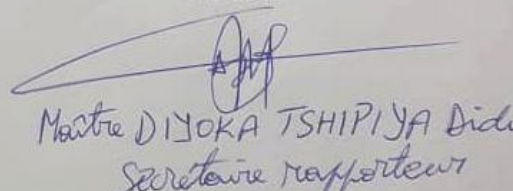 Maître DIYOKA TSHIPIYA Didi
Secrétaire rapporteur